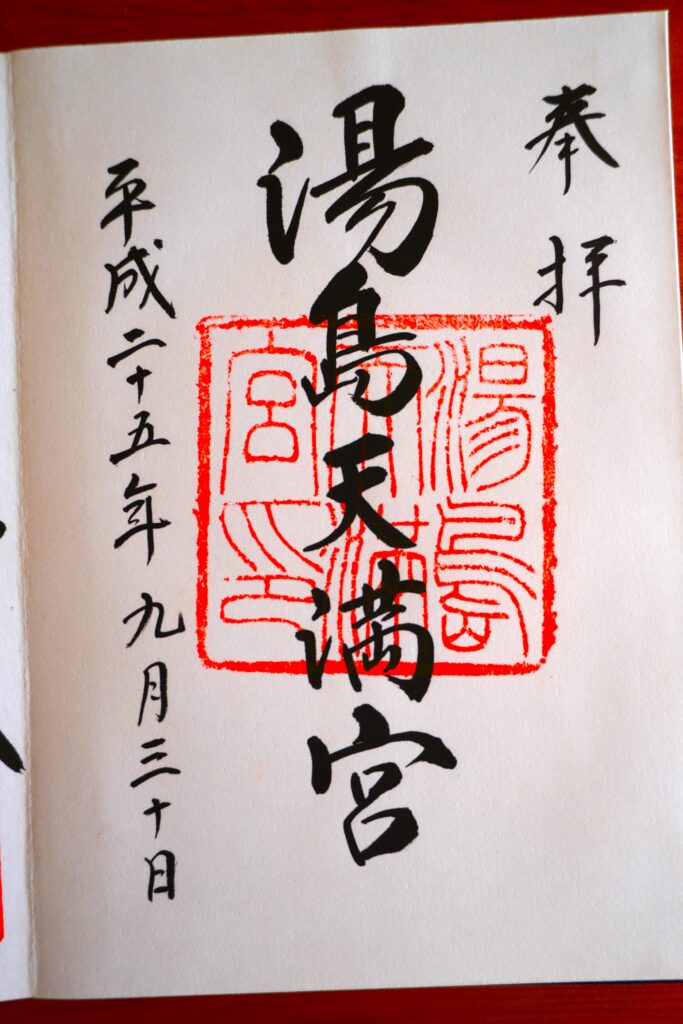 奉拝
湯島天満宮
湯島天満宮印
平成二十五年九月三十日